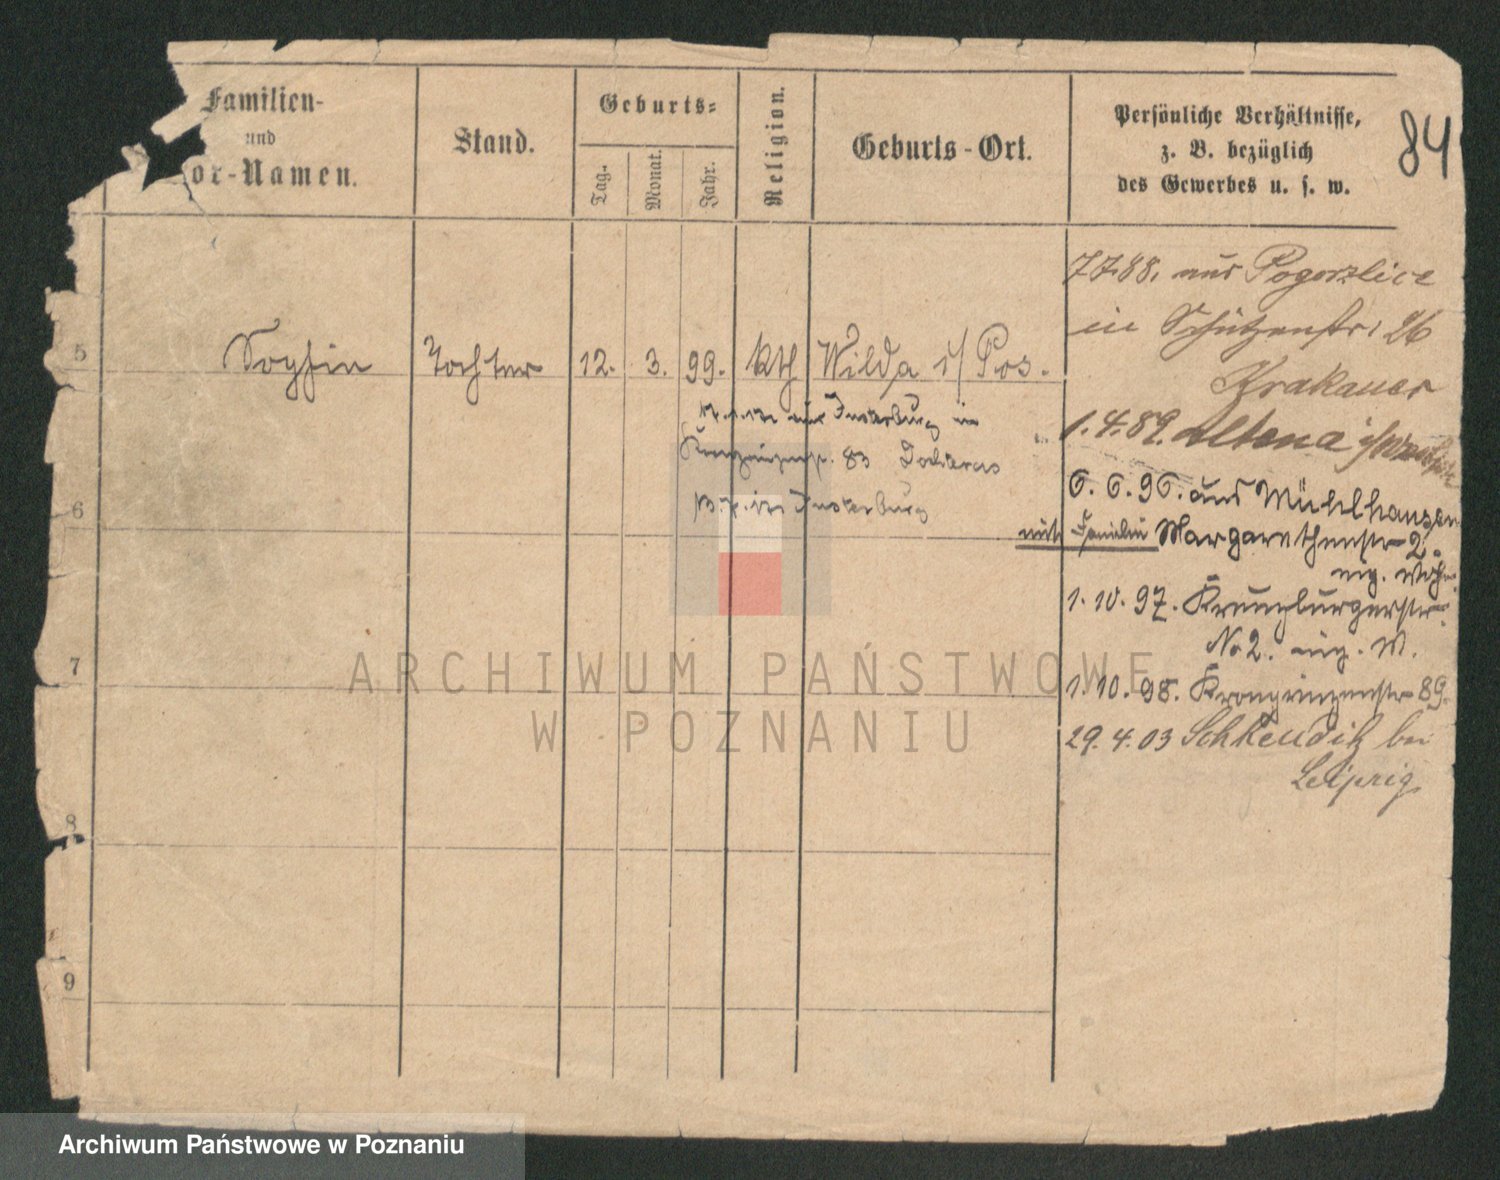 Familien-
und
or-Namen.
Stand.
Geburts-
Tag.
Monat.
Jahr.
Religion.
Geburts-Ort.
Persönliche Verhältnisse,
z. B. bezüglich
des Gewerbes u. s. w.
84
7.7.88. aus Pogorzlice
in Schützenstr. 26
Krakauer
5 Sophie Tochter 12. 3. 99. kth Wilda i/ Pos.
aus Insterburg in
1.4.89. Altena i/
Kronprinzenstr. 83
6. 6. 96. aus Mühlhausen
Insterburg
6
mit Familie Margarethenstr 2.
eig. Wohn.
1. 10. 97. Kreuzburgerstr.
No 2. eig. W.
7
1. 10. 98. Kronprinzenstr 89.
29. 4. 03 Schkeuditz bei
Leipzig
8
9
ARCHIWUM PAŃSTWOWE
W POZNANIU
Archiwum Państwowe w Poznaniu